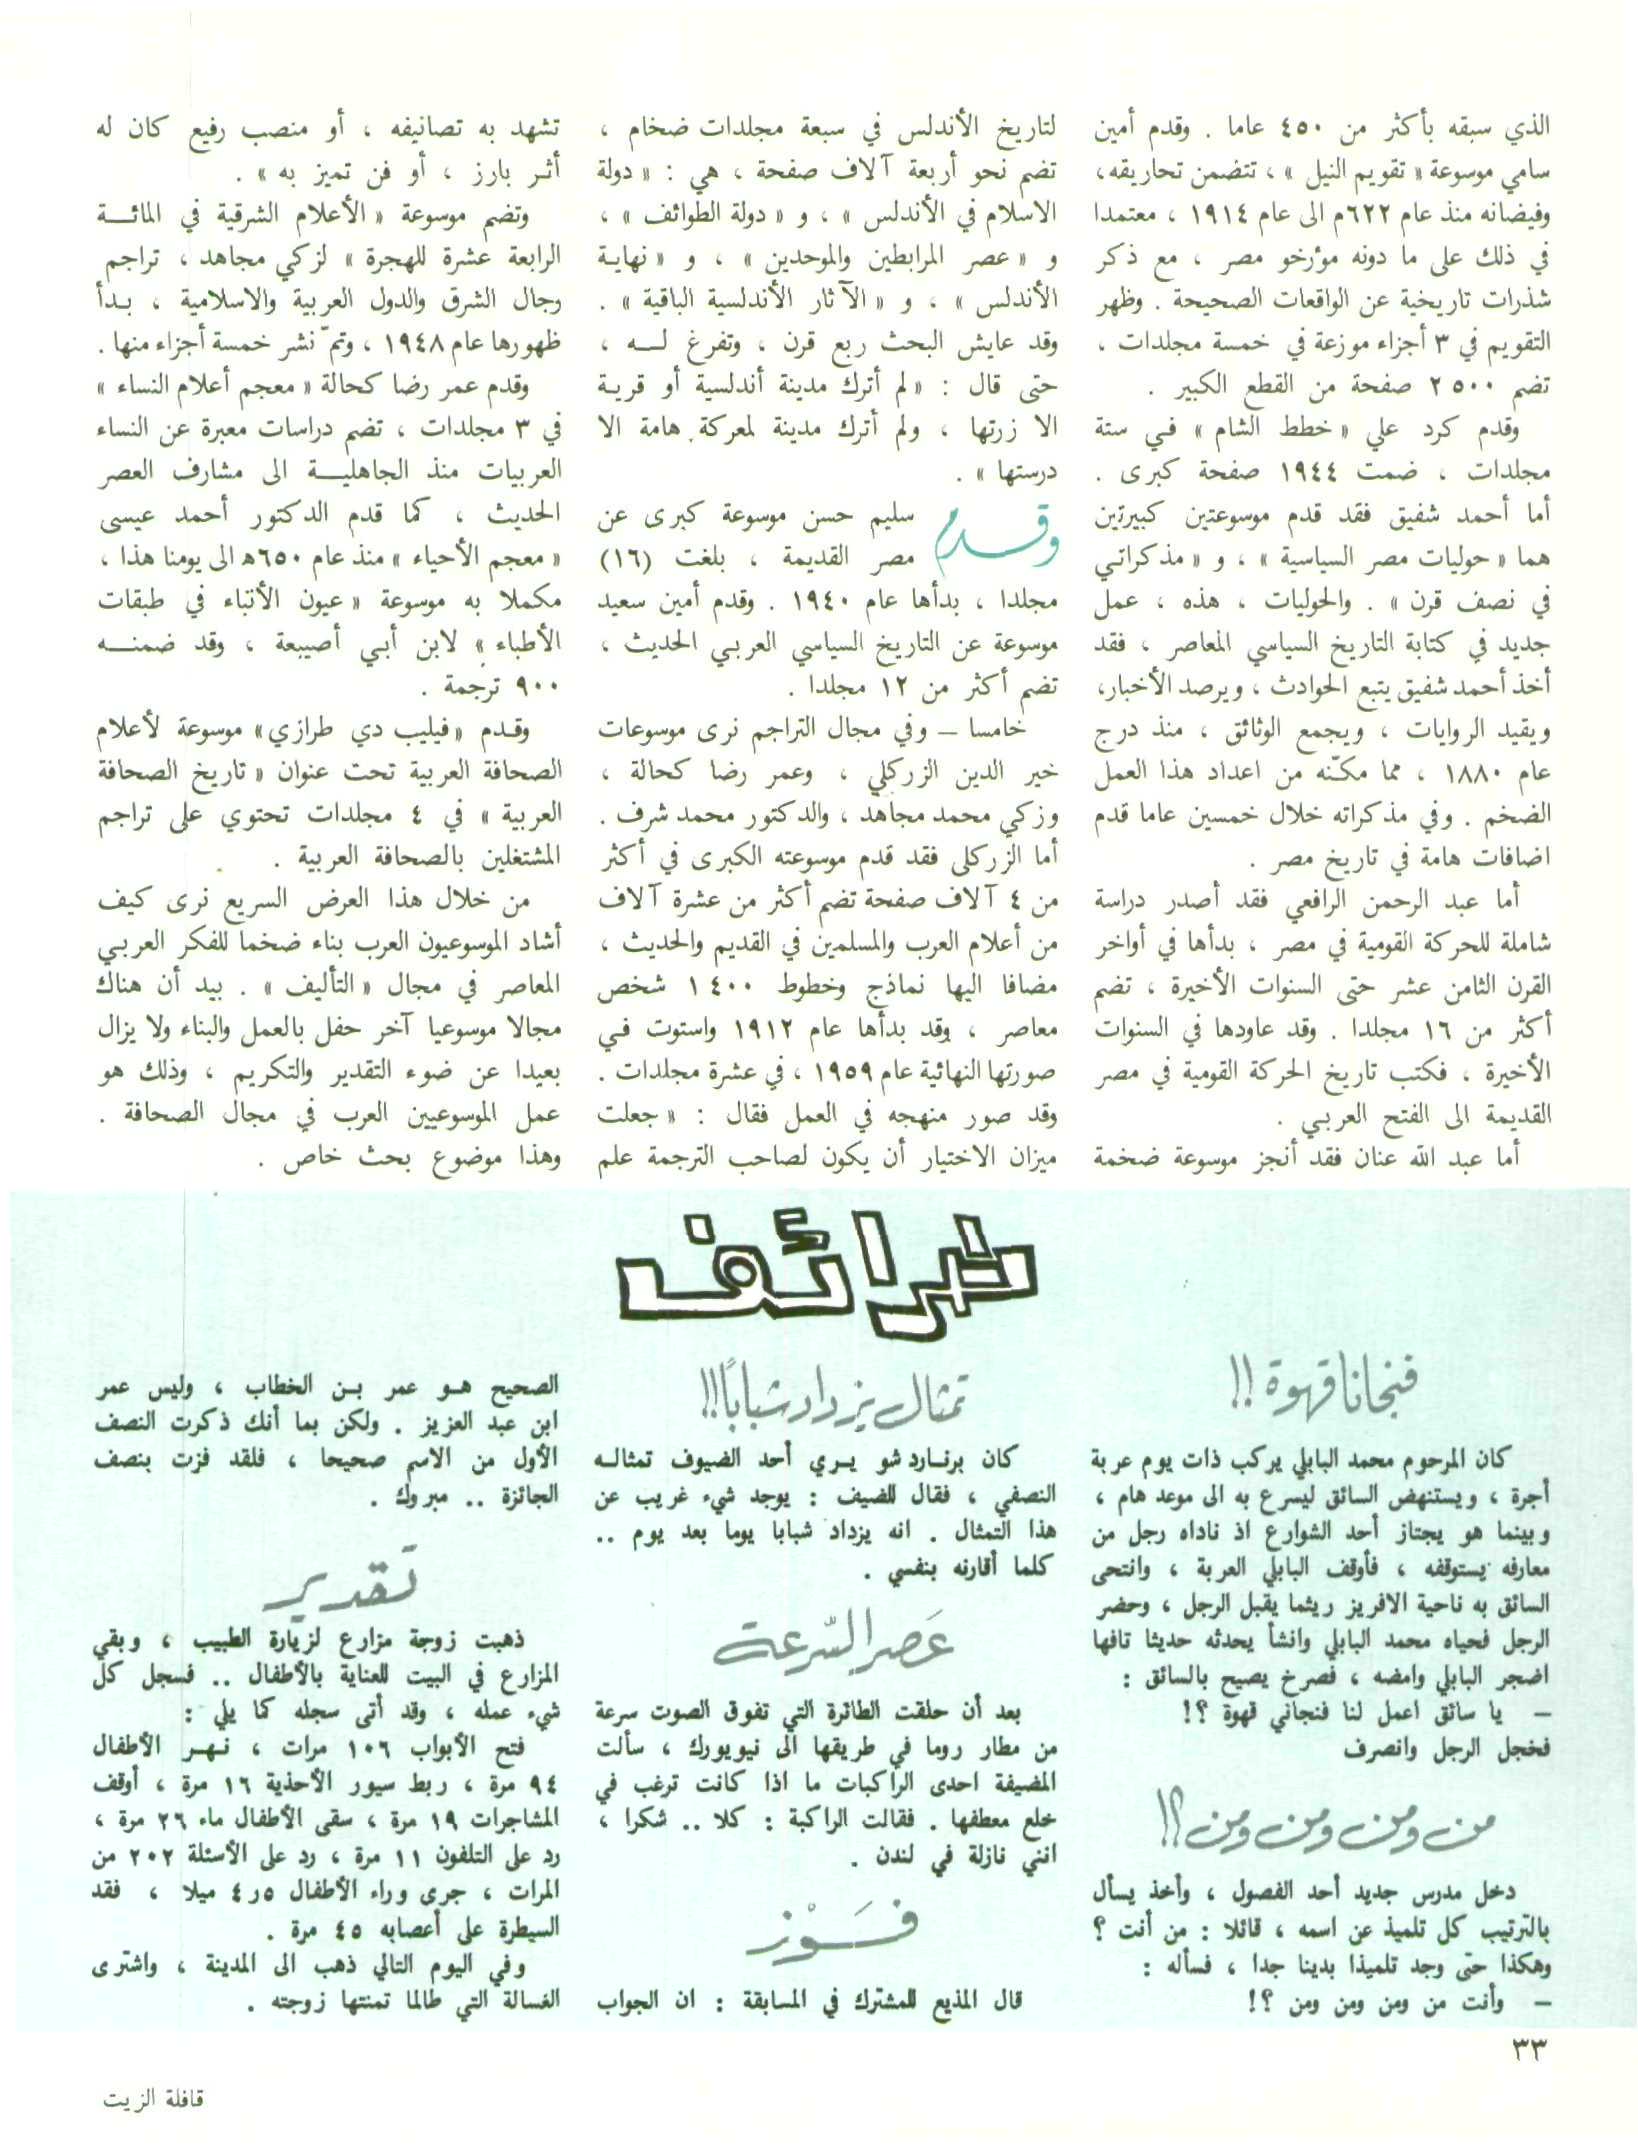 الذي سبقه بأكثر من ٤٥٠ عاما . وقدم أمين
سامي موسوعة « تقويم النيل » ، تتضمن تحاريقه ،
وفيضانه منذ عام ٦٢٢م الى عام ١٩١٤ ، معتمدا
في ذلك على ما دونه مؤرخو مصر ، مع ذكر
شذرات تاريخية عن الواقعات الصحيحة . وظهر
التقويم في ٣ أجزاء موزعة في خمسة مجلدات ،
تضم ٢٥٠٠ صفحة من القطع الكبير .
وقدم كرد علي « خطط الشام » في ستة
مجلدات ، ضمت ١٩٤٤ صفحة كبرى .
أما أحمد شفيق فقد قدم موسوعتين كبيرتين
هما « حوليات مصر السياسية » ، و « مذكراتي
في نصف قرن » . والحوليات ، هذه ، عمل
جديد في كتابة التاريخ السياسي المعاصر ، فقد
أخذ أحمد شفيق يتبع الحوادث ، ويرصد الأخبار،
ويقيد الروايات ، ويجمع الوثائق ، منذ درج
عام ١٨٨٠ ، مما مكّنه من اعداد هذا العمل
الضخم . وفي مذكراته خلال خمسين عاما قدم
اضافات هامة في تاريخ مصر .
أما عبد الرحمن الرافعي فقد أصدر دراسة
شاملة للحركة القومية في مصر ، بدأها في أواخر
القرن الثامن عشر حتى السنوات الأخيرة ، تضم
أكثر من ١٦ مجلدا . وقد عاودها في السنوات
الأخيرة ، فكتب تاريخ الحركة القومية في مصر
القديمة الى الفتح العربي .
أما عبد الله عنان فقد أنجز موسوعة ضخمة
لتاريخ الأندلس في سبعة مجلدات ضخام ،
تضم نحو أربعة آلاف صفحة ، هي : « دولة
الاسلام في الأندلس » ، و « دولة الطوائف » ،
و « عصر المرابطين والموحدين » ، و « نهاية
الأندلس » ، و « الآثار الأندلسية الباقية » .
وقد عايش البحث ربع قرن ، وتفرغ له ،
حتى قال : « لم أترك مدينة أندلسية أو قرية
الا زرتها ، ولم أترك مدينة لمعركة هامة الا
درستها » .
وقدم سليم حسن موسوعة كبرى عن
مصر القديمة ، بلغت (١٦)
مجلدا ، بدأها عام ١٩٤٠ . وقدم أمين سعيد
موسوعة عن التاريخ السياسي العربي الحديث ،
تضم أكثر من ١٢ مجلدا .
خامسا – وفي مجال التراجم نرى موسوعات
خير الدين الزركلي ، وعمر رضا كحالة ،
وزكي محمد مجاهد ، والدكتور محمد شرف .
أما الزركلى فقد قدم موسوعته الكبرى في أكثر
من ٤ آلاف صفحة تضم أكثر من عشرة آلاف
من أعلام العرب والمسلمين في القديم والحديث ،
مضافا اليها نماذج وخطوط ١٤٠٠ شخص
معاصر ، وقد بدأها عام ١٩١٢ واستوت في
صورتها النهائية عام ١٩٥٩ ، في عشرة مجلدات .
وقد صور منهجه في العمل فقال : « جعلت
ميزان الاختيار أن يكون لصاحب الترجمة علم
تشهد به تصانيفه ، أو منصب رفيع كان له
أثر بارز ، أو فن تميز به » .
وتضم موسوعة « الأعلام الشرقية في المائة
الرابعة عشرة للهجرة » لزكي مجاهد ، تراجم
وجال الشرق والدول العربية والاسلامية ، بدأ
ظهورها عام ١٩٤٨ ، وتمّ نشر خمسة أجزاء منها .
وقدم عمر رضا كحالة « معجم أعلام النساء »
في ٣ مجلدات ، تضم دراسات معبرة عن النساء
العربيات منذ الجاهلية الى مشارف العصر
الحديث ، كما قدم الدكتور أحمد عيسى
« معجم الأحياء » منذ عام ٦٥٠ه الى يومنا هذا ،
مكملا به موسوعة « عيون الأنباء في طبقات
الأطباء » لابن أبي أصيبعة ، وقد ضمنه
٩٠٠ ترجمة .
وقدم «فيليب دي طرازي» موسوعة لأعلام
الصحافة العربية تحت عنوان « تاريخ الصحافة
العربية » في ٤ مجلدات تحتوي على تراجم
المشتغلين بالصحافة العربية .
من خلال هذا العرض السريع نرى كيف
أشاد الموسوعيون العرب بناء ضخما للفكر العربي
المعاصر في مجال «التأليف» . بيد أن هناك
مجالا موسوعيا آخر حفل بالعمل والبناء ولا يزال
بعيدا عن ضوء التقدير والتكريم ، وذلك هو
عمل الموسوعيين العرب في مجال الصحافة .
وهذا موضوع بحث خاص .
طرائف
فنجانا قهوة !!
كان المرحوم محمد البابلي يركب ذات يوم عربة
أجرة ، ويستنهض السائق ليسرع به الى موعد هام ،
وبينما هو يجتاز أحد الشوارع اذ ناداه رجل من
معارفه يستوقفه ، فأوقف البابلي العربة ، وانتحى
السائق به ناحية الافريز ريثما يقبل الرجل ، وحضر
الرجل فحياه محمد البابلي وانشأ يحدثه حديثا تافها
اضجر البابلي وامضه ، فصرخ يصيح بالسائق :
– يا سائق اعمل لنا فنجاني قهوة ؟!
فخجل الرجل وانصرف
من ومن ومن ومن ؟!!
دخل مدرس جديد أحد الفصول ، وأخذ يسأل
بالترتيب كل تلميذ عن اسمه ، قائلا : من أنت ؟
وهكذا حتى وجد تلميذا بدينا جدا ، فسأله :
– وأنت من ومن ومن ومن ؟!
تمثال يزداد شبابًا!!
كان برنارد شو يري أحد الضيوف تمثاله
النصفي ، فقال للضيف : يوجد شيء غريب عن
هذا التمثال . انه يزداد شبابا يوما بعد يوم ..
كلما أقارنه بنفسي .
عَصر السّرعة
بعد أن حلقت الطائرة التي تفوق الصوت سرعة
من مطار روما في طريقها الى نيويورك ، سألت
المضيفة احدى الراكبات ما اذا كانت ترغب في
خلع معطفها . فقالت الراكبة : كلا .. شكرا ،
انني نازلة في لندن .
فَوْز
قال المذيع للمشترك في المسابقة : ان الجواب
الصحيح هو عمر بن الخطاب ، وليس عمر
ابن عبد العزيز . ولكن بما أنك ذكرت النصف
الأول من الاسم صحيحا ، فلقد فزت بنصف
الجائزة .. مبروك .
تقدير
ذهبت زوجة مزارع لزيارة الطبيب ، وبقي
المزارع في البيت للعناية بالأطفال .. فسجل كل
شيء عمله ، وقد أتى سجله كما يلي :
فتح الأبواب ١٠٦ مرات ، نهر الأطفال
٩٤ مرة ، ربط سيور الأحذية ١٦ مرة ، أوقف
المشاجرات ١٩ مرة ، سقى الأطفال ماء ٢٦ مرة ،
رد على التلفون ١١ مرة ، رد على الأسئلة ٢٠٢ من
المرات ، جرى وراء الأطفال ٤٫٥ ميلا ، فقد
السيطرة على أعصابه ٤٥ مرة .
وفي اليوم التالي ذهب الى المدينة ، واشترى
الغسالة التي طالما تمنتها زوجته .
٣٣
قافلة الزيت